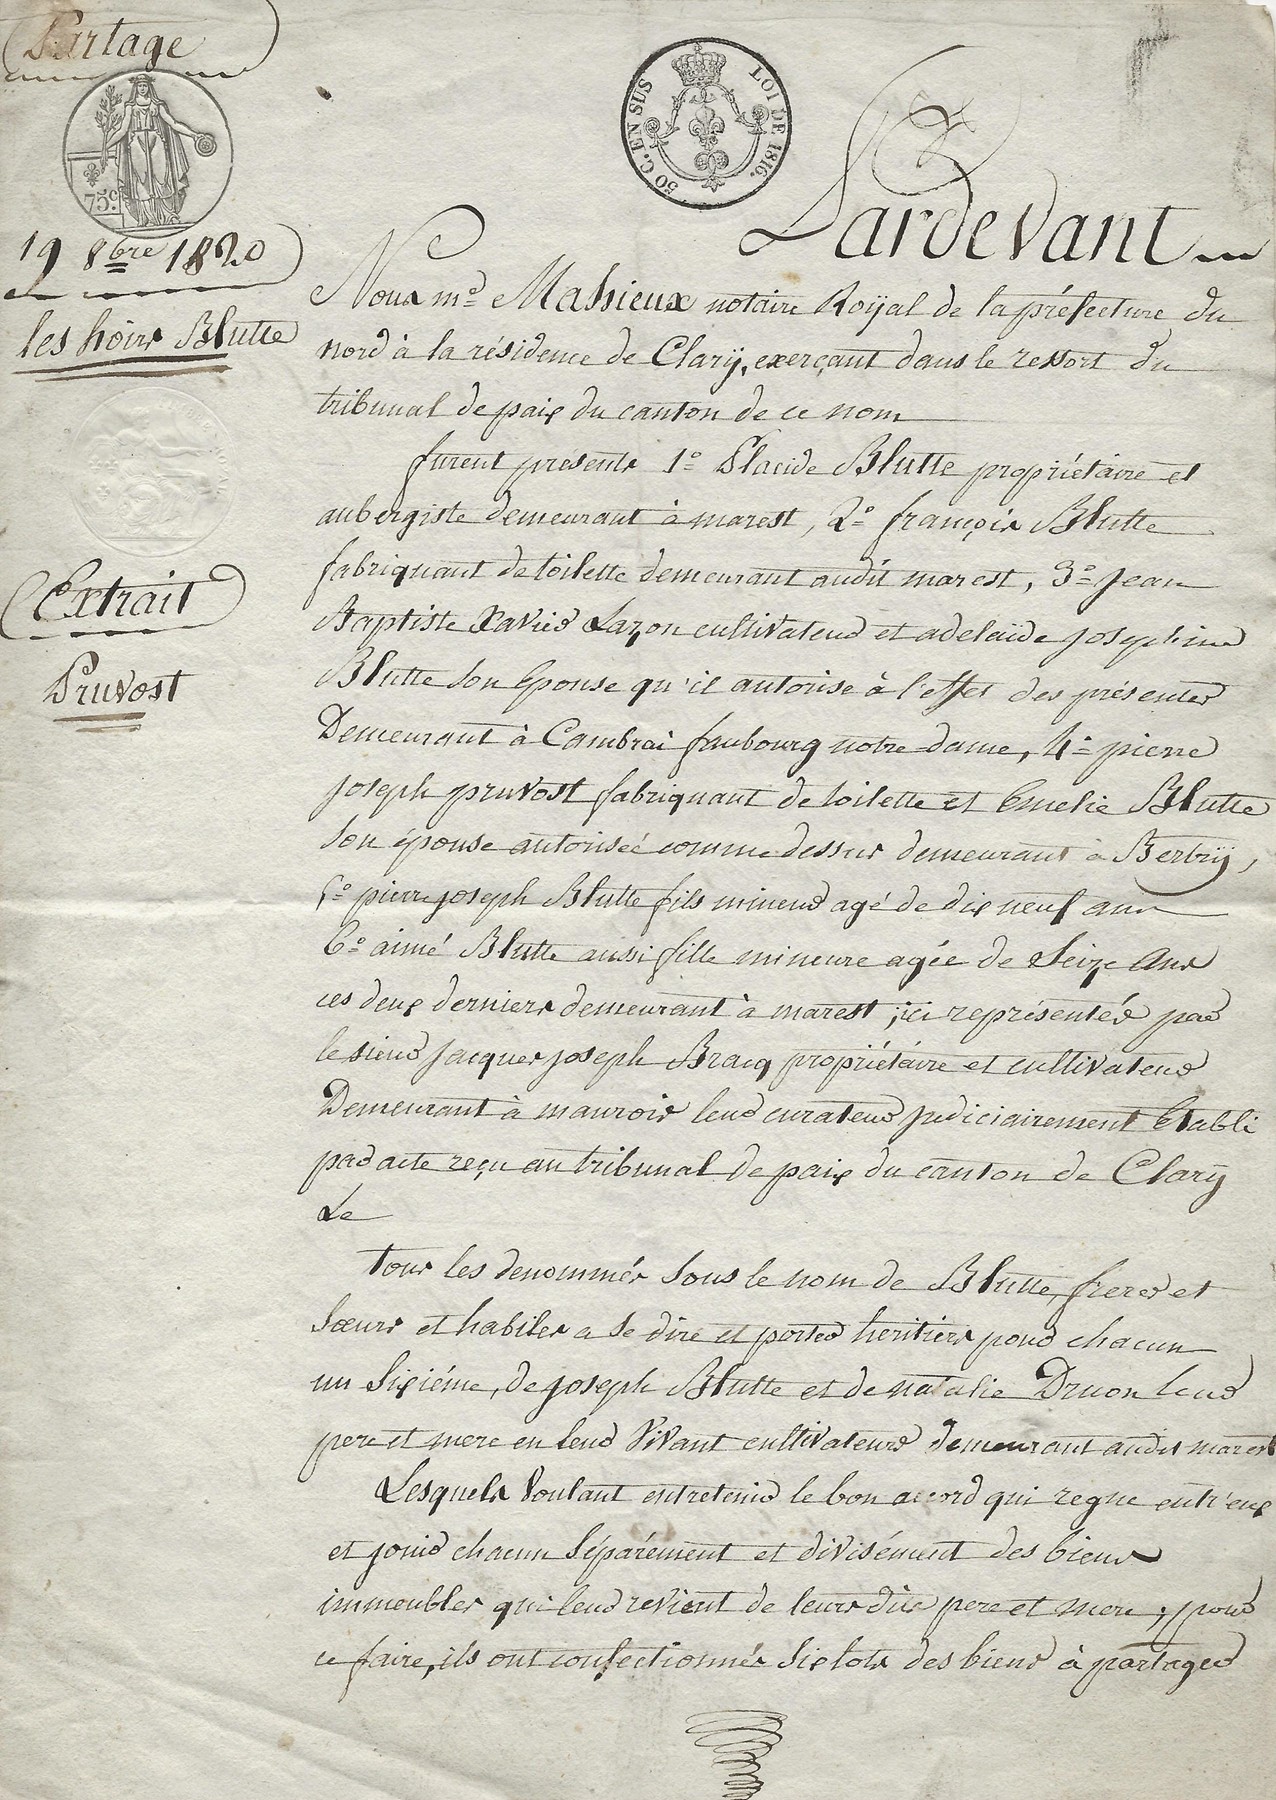 Partage
75c.
50 C. EN SUS LOI DE 1816.
19 8bre 1820
les hoirs Blutte
Extrait
Pruvost
Pardevant
Nous me Mahieux notaire Royal de la préfecture du
nord à la résidence de Clary, exerçant dans le ressort du
tribunal de paix du canton de ce nom
furent presents 1° Placide Blutte propriétaire et
aubergiste demeurant à marest, 2° françois Blutte
fabriquant de toilette demeurant audit marest, 3° Jean
Baptiste Xavier Lazon cultivateur et adelaïde josephine
Blutte son Epouse qu'il autorise à l'effet des présentes
Demeurant à Cambrai faubourg notre dame, 4° pierre
joseph pruvost fabriquant de toilette et Emelie Blutte
son épouse autorisée comme dessus demeurant à Bertry,
5° pierre joseph Blutte fils mineur agé de dix neuf ans
6° aimé Blutte aussi fille mineure agée de Seize ans
ces deux derniers demeurant à marest, ici représentés par
le sieur Jacques joseph Bracq propriétaire et cultivateur
Demeurant à maurois leur curateur judiciairement Etabli
par acte reçu au tribunal de paix du canton de Clary
Le
tous les denommés sous le nom de Blutte, freres et
sœurs et habiles a se dire et porter heritiers pour chacun
un Sixiéme, de joseph Blutte et de natalie Druon leur
pere et mere en leur Vivant cultivateurs demeurant audit marest
Lesquels Voulant entretenir le bon accord qui regne entr'eux
et jouir chacun Séparément et divisément des biens
immeubles qui leur revient de leurs dits pere et mere, pour
ce faire, ils ont confectionnés Six lots des biens à partager